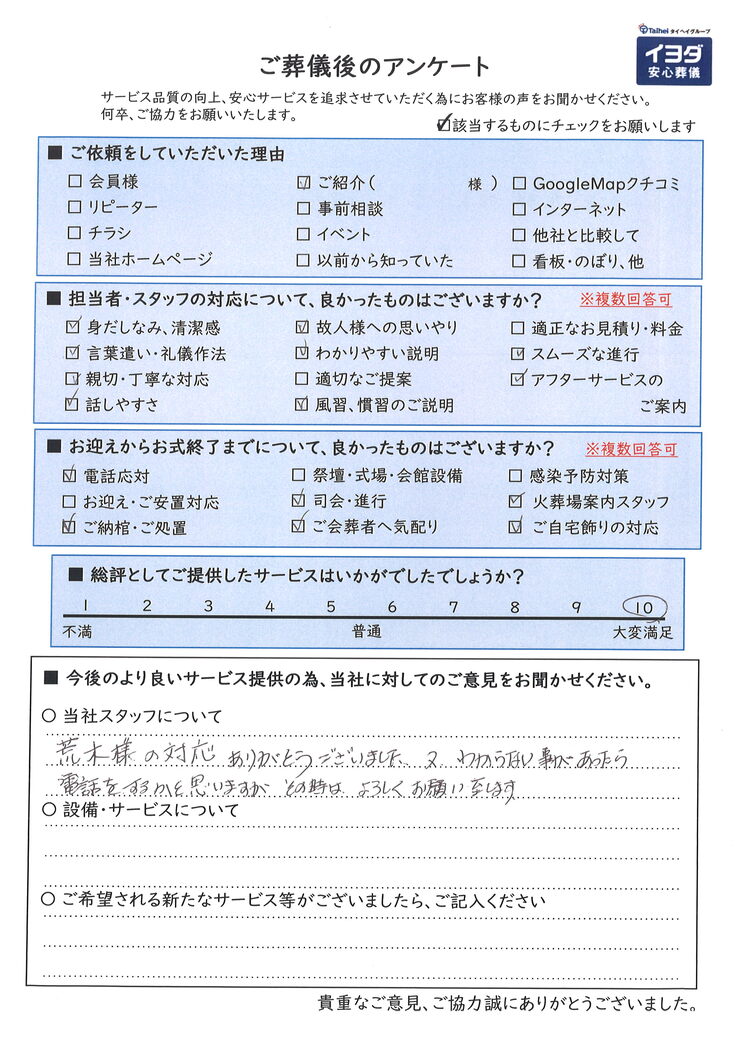 Taihei タイヘイグループ
イヨダ
安心葬儀
ご葬儀後のアンケート
サービス品質の向上、安心サービスを追求させていただく為にお客様の声をお聞かせください。
何卒、ご協力をお願いいたします。
☑該当するものにチェックをお願いします
■ ご依頼をしていただいた理由
☐ 会員様 ☑ ご紹介( 様 ) ☐ GoogleMapクチコミ
☐ リピーター ☐ 事前相談 ☐ インターネット
☐ チラシ ☐ イベント ☐ 他社と比較して
☐ 当社ホームページ ☐ 以前から知っていた ☐ 看板・のぼり、他
■ 担当者・スタッフの対応について、良かったものはございますか? ※複数回答可
☑ 身だしなみ、清潔感 ☑ 故人様への思いやり ☐ 適正なお見積り・料金
☑ 言葉遣い・礼儀作法 ☑ わかりやすい説明 ☑ スムーズな進行
☑ 親切・丁寧な対応 ☐ 適切なご提案 ☑ アフターサービスの
☑ 話しやすさ ☑ 風習、慣習のご説明 ご案内
■ お迎えからお式終了までについて、良かったものはございますか? ※複数回答可
☑ 電話応対 ☐ 祭壇・式場・会館設備 ☐ 感染予防対策
☐ お迎え・ご安置対応 ☑ 司会・進行 ☑ 火葬場案内スタッフ
☑ ご納棺・ご処置 ☑ ご会葬者へ気配り ☑ ご自宅飾りの対応
■ 総評としてご提供したサービスはいかがでしたでしょうか?
1 2 3 4 5 6 7 8 9 10
不満 普通 大変満足
■ 今後のより良いサービス提供の為、当社に対してのご意見をお聞かせください。
○ 当社スタッフについて
荒木様の対応 ありがとうございました 又 わからない事があったら
電話をするかと思いますが その時は よろしくお願い致します
○ 設備・サービスについて
○ ご希望される新たなサービス等がございましたら、ご記入ください
貴重なご意見、ご協力誠にありがとうございました。